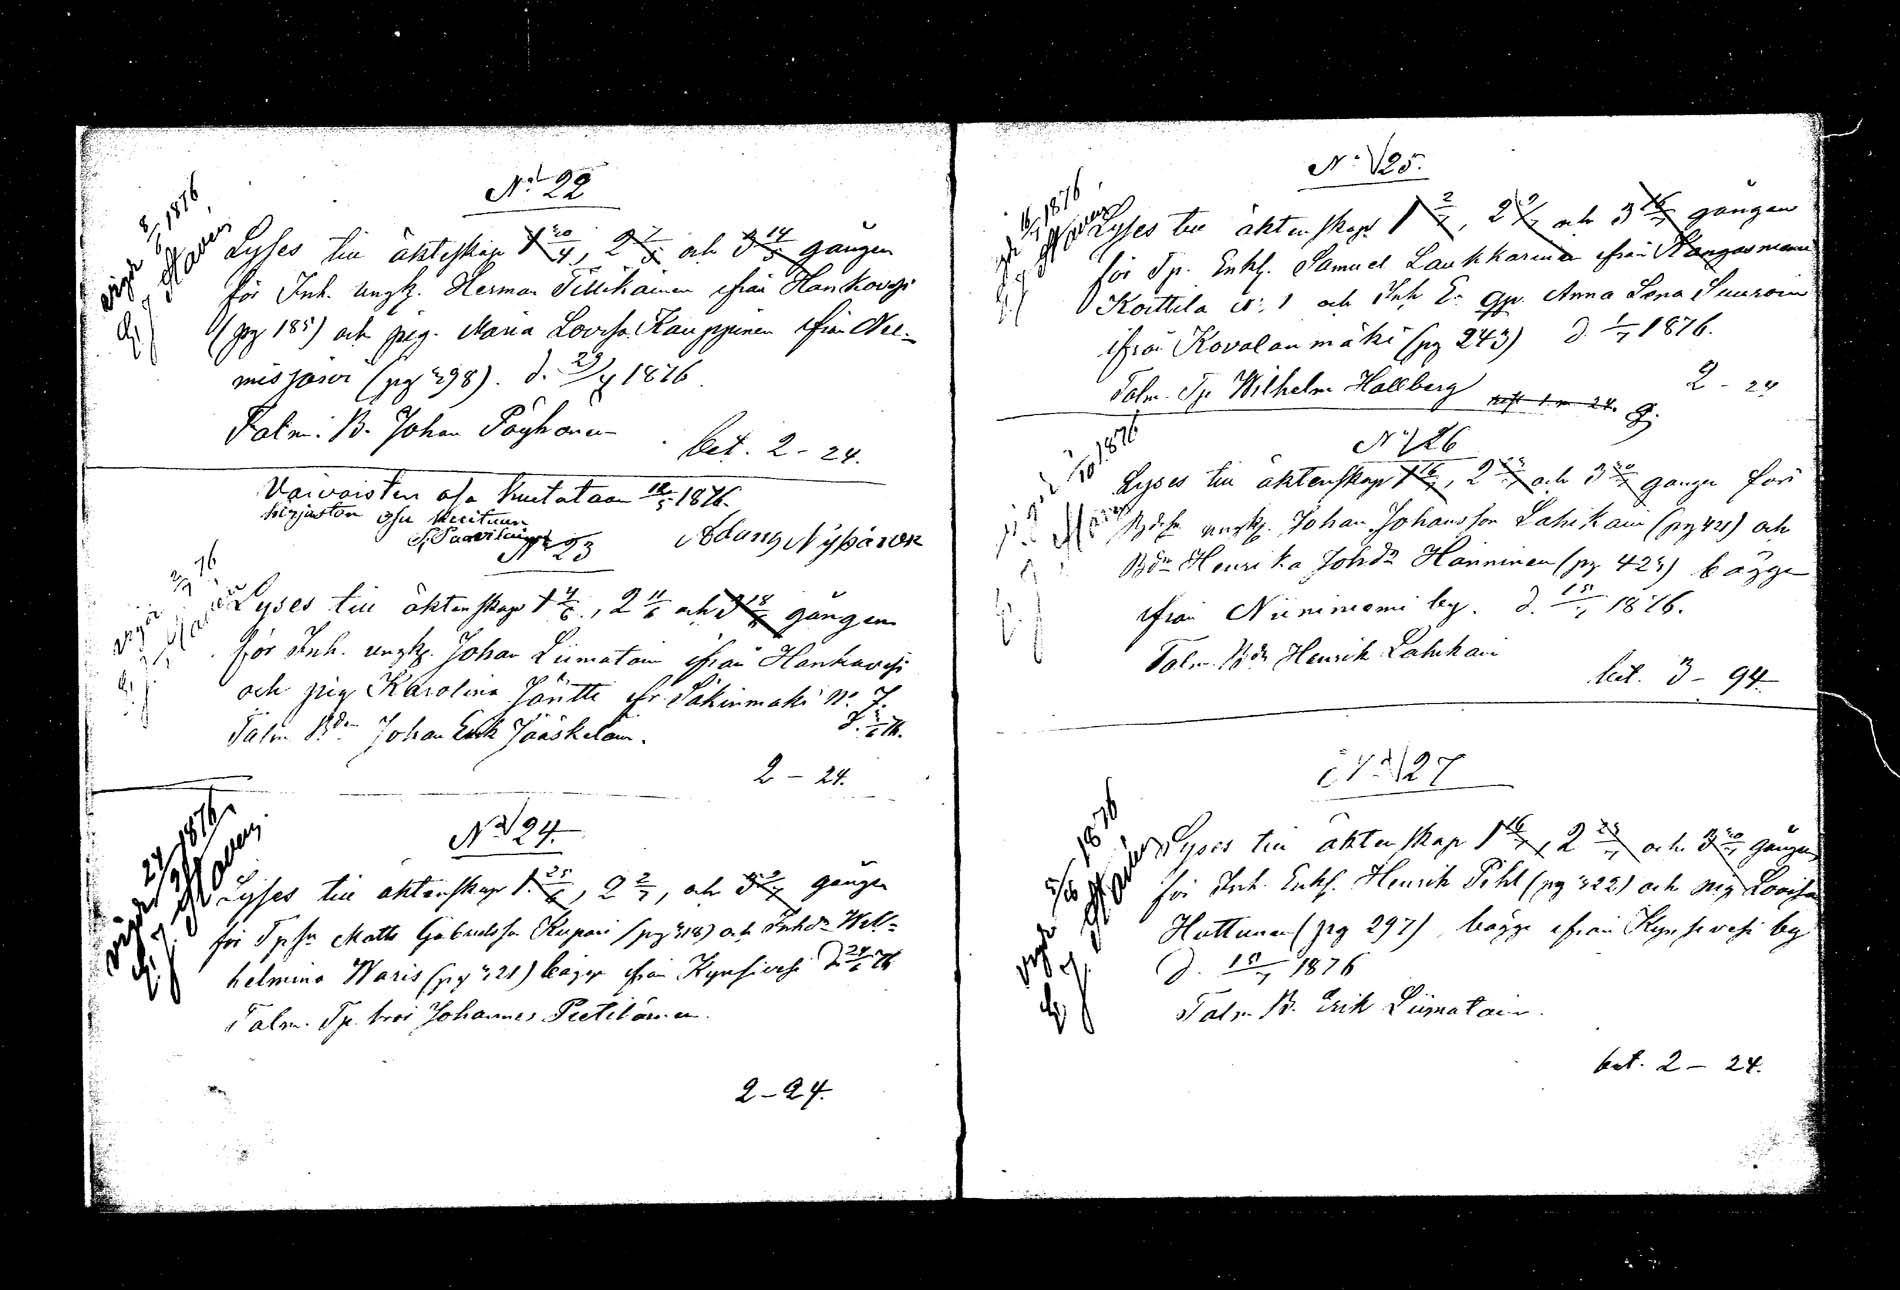 N:o 22
vigde 8/6 1876,
E. J. Stavén
Lyses till äkteskap 1 30/4, 2 7/5 och 3 14/5 gången
för Inh. ungk. Herman Tillikainen ifrån Hankavesi
(pg 185) och pig. Maria Lovisa Kauppinen ifrån Nee-
misjärvi (pg 398). d. 29/4 1876
Talm. B. Johan Pöyhönen
bet. 2 - 24.
Vaivaisten osa kuitataan 18/5 1876.
kirjaston osa
Adam Nypänen
No 23
76
E. J. Stavén
Lyses till äktenskap 1 4/6, 2 11/6 och 3 18/6 gången
för Inh. ungk. Johan Liimatain ifrån Hankavesi
och pig Karolina Jäntti ifr. Säkinmäki No. 7.
Talm Bdn Johan Erik Jääskeläin.
2 - 24.
No 24.
vigde 24/9 1876
E. J. Stavén.
Lyses till äktenskap 1 25/6, 2 2/7, och 3 9/7 gången
för Tpsn Matts Gabrielsson Kupari (pg 318) och Inhdr Wil-
helmina Waris (pg 321) bägge ifrån Kynsivesi d 24/6 76
Talm. Tp. bror Johannes Pietiläinen.
2 - 24.
N:o 25.
1876,
E. J. Stavén
Lyses till äktenskap 1 2/7, 2 9/7 och 3 16/7 gången
för Tp. Enkl. Samuel Laukkarinen ifrån Kangasniemi
Koittila No: 1 och Inh E. Anna Lena Suuroin
ifrån Kovalanmäki (pg 243) d. 1/7 1876.
Talm. Tp Wilhelm Hallberg
2 - 24
No 26
1876
E. J. Stavén
Lyses till äktenskap 1 16/7, 2 23/7 och 3 30/7 gången för
Bdsn ungk. Johan Johansson Lahikain (pg 421) och
Bdr Henrika Johdr Hänninen (pg 423) bägge
ifrån Niinimämi by. d. 15/7 1876.
Talm. Bdn Henrik Lahikain
bet. 3 - 94
No 27
1876
E. J. Stavén
Lyses till äktenskap 1 16/7, 2 23/7 och 3 30/7 gången
för Inh. Enkl. Henrik Pihl (pg 322) och pig Lovisa
Huttunen (pg 297) bägge ifrån Kynsivesi by
d. 15/7 1876
Talm B. Erik Liimatain.
bet. 2 - 24.